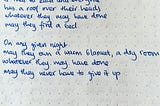 has a roof over their heads
whatever they may have done
may they find a bed.
On any given night
may they own a warm blanket, a dry room
whatever they may have done
may they never have to give it up